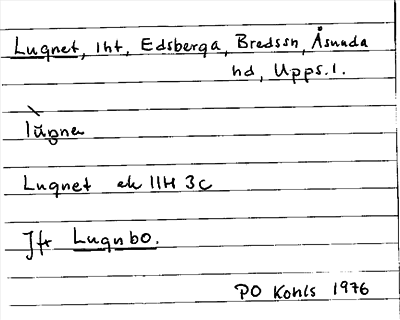 Lugnet, lht, Edsberga, Bredssn, Åsunda
hd, Upps. l.
lùŋnen
Lugnet ek 11H 3c
Jfr Lugnbo.
PO Kohls 1976